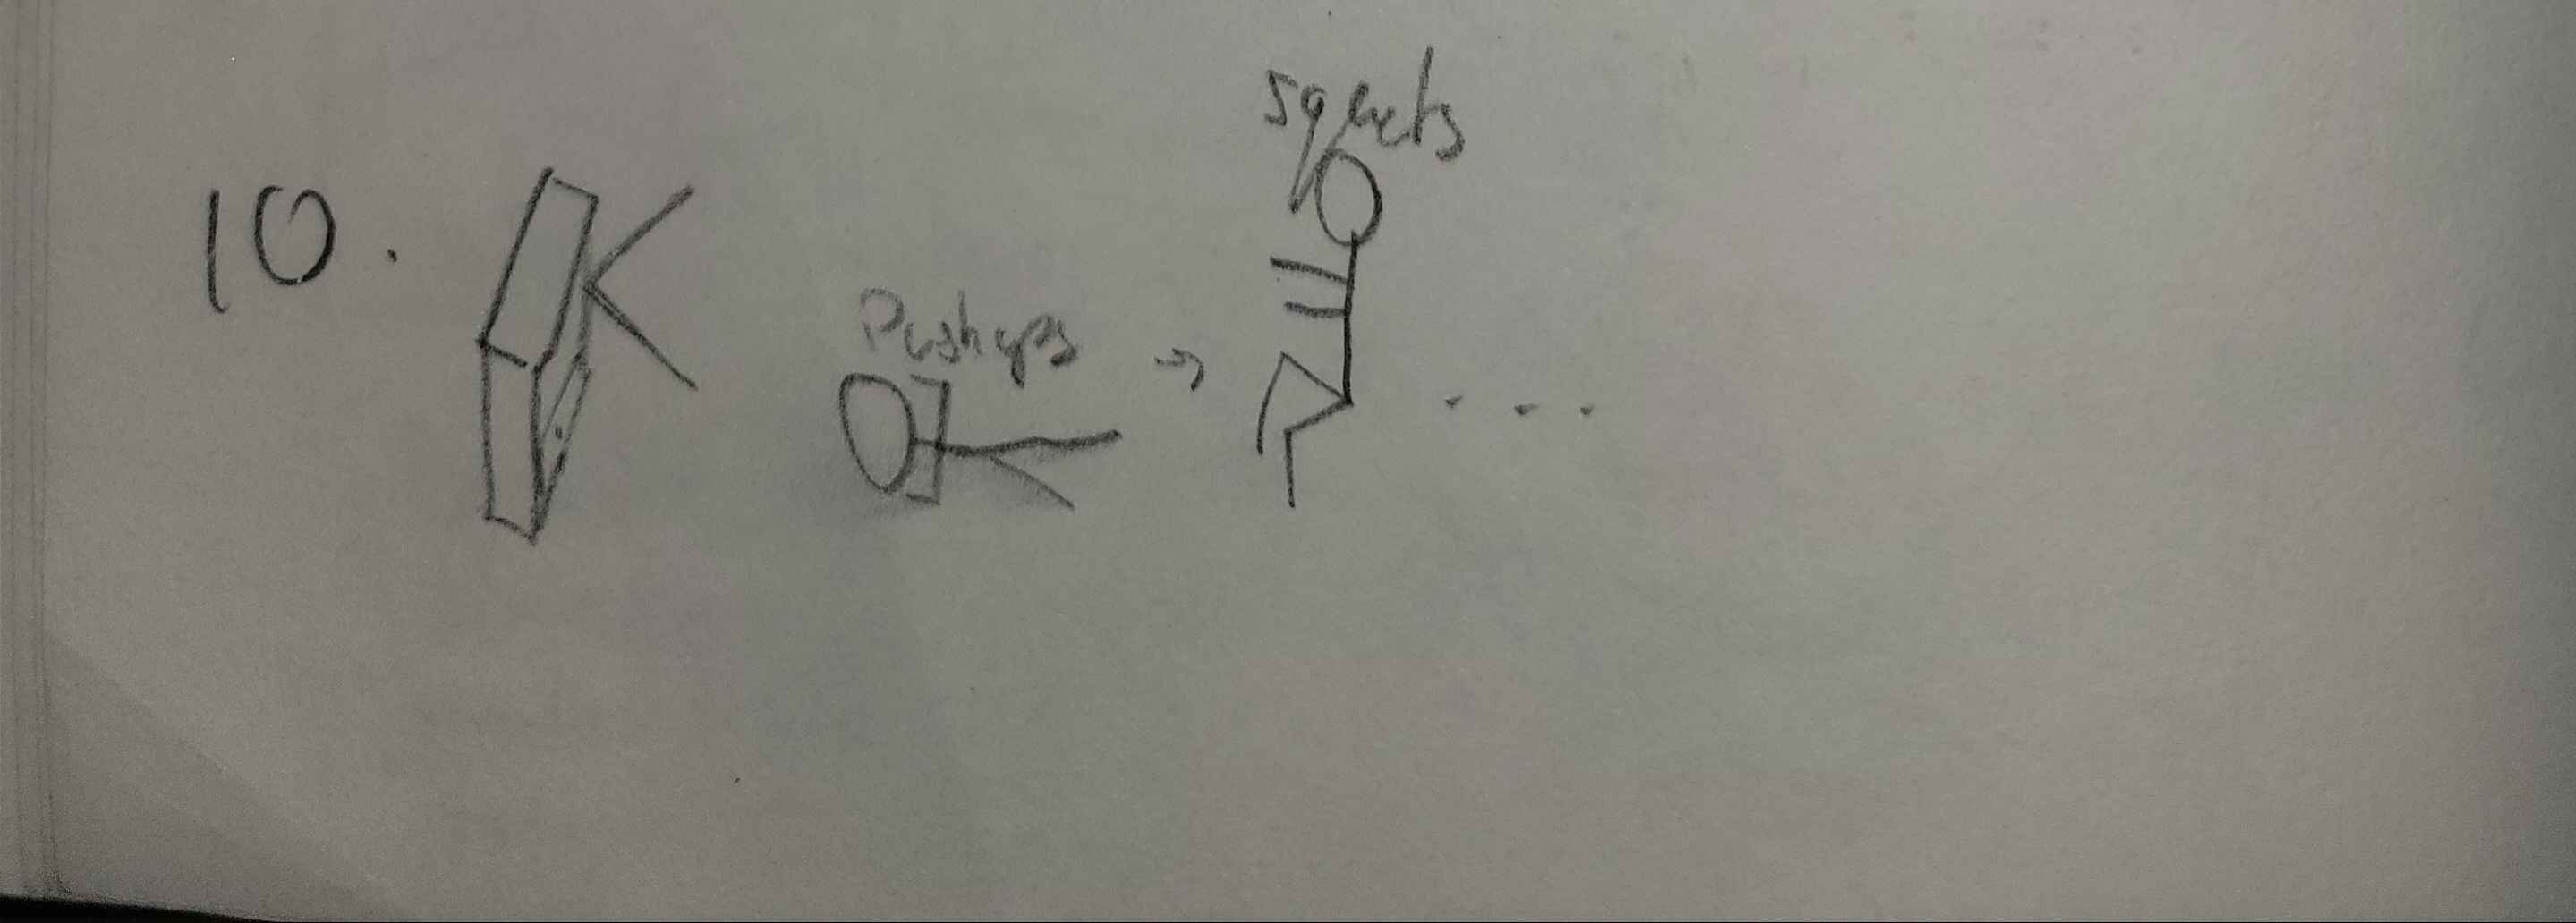 10. K
Pushups →
squats
. . .